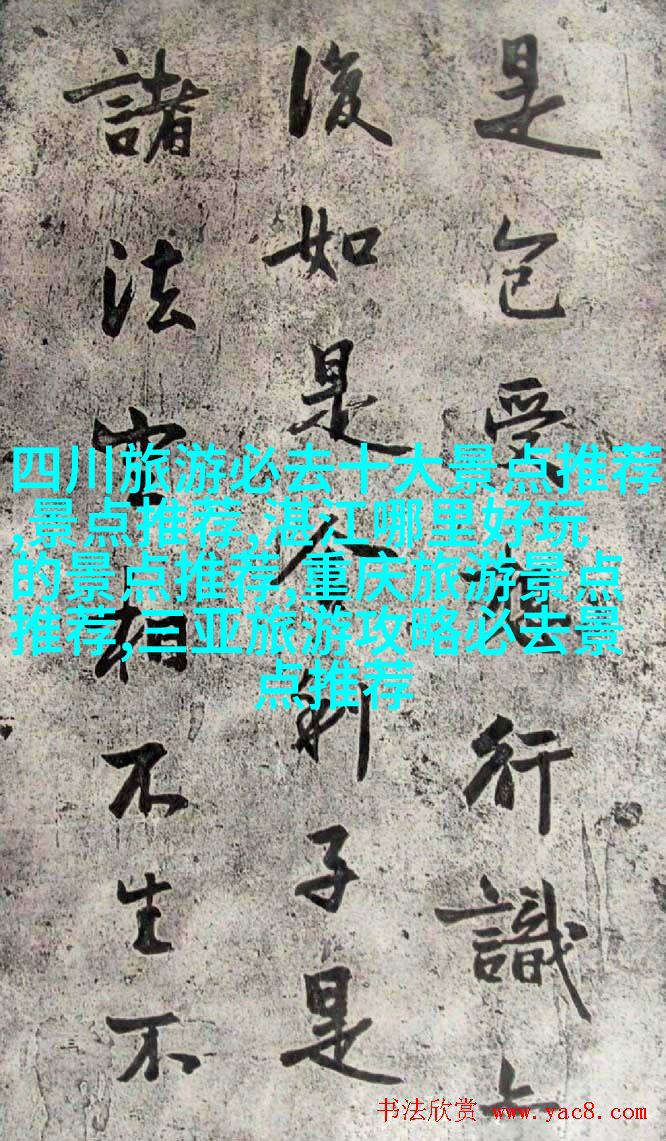 是色受想行識
復如是舍利子是
諸法空相不生不
四川旅游必去十大景点推荐
,景点推荐,湛江哪里好玩
的景点推荐,重庆旅游景点
推荐,三亚旅游攻略必去景
点推荐
书法欣赏 www.yac8.com